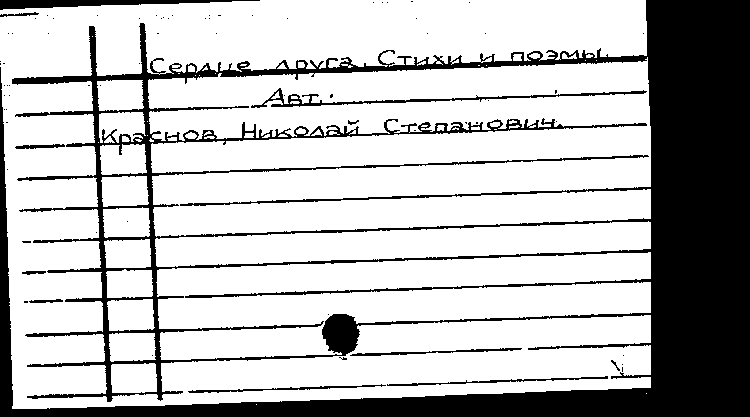 Сердце друга. Стихи и поэмы.
Авт.:
Краснов, Николай Степанович.